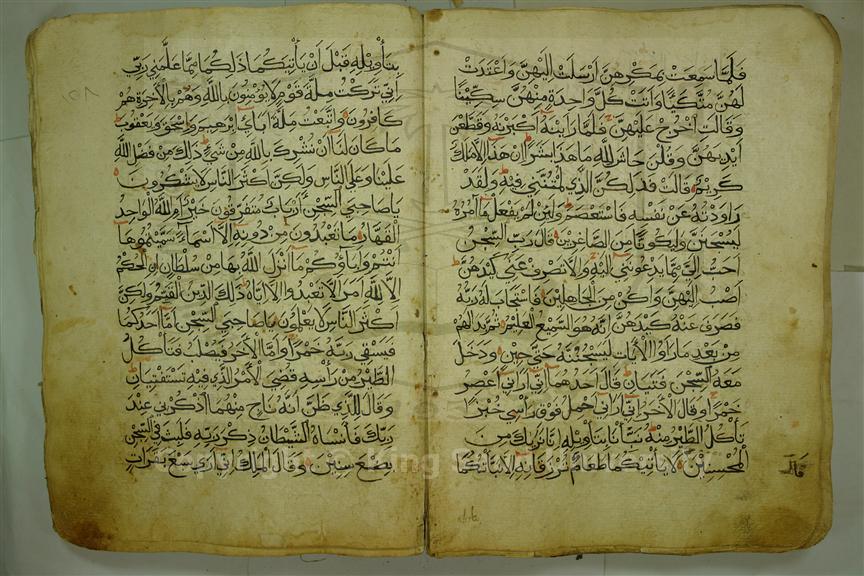 فلما سمعت بمكرهن ارسلت اليهن واعتدت
لهن متكئا واتت كل واحدة منهن سكينا
وقالت اخرج عليهن فلما راينه اكبرنه وقطعن
ايديهن وقلن حاش لله ما هذا بشرا ان هذا الا ملك
كريم قالت فذلكن الذي لمتنني فيه ولقد
راودته عن نفسه فاستعصم ولئن لم يفعل ما آمره
ليسجنن وليكونا من الصاغرين قال رب السجن
احب الي مما يدعونني اليه والا تصرف عني كيدهن
اصب اليهن واكن من الجاهلين فاستجاب له ربه
فصرف عنه كيدهن انه هو السميع العليم ثم بدا لهم
من بعد ما راوا الايات ليسجننه حتى حين ودخل
معه السجن فتيان قال احدهما اني اراني اعصر
خمرا وقال الاخر اني اراني احمل فوق راسي خبزا
تأكل الطير منه نبئنا بتأويله انا نريك من
المحسنين قال لا يأتيكما طعام ترزقانه الا نبأتكما
بتأويله قبل ان يأتيكما ذلكما مما علمني ربي
اني تركت ملة قوم لا يؤمنون بالله وهم بالاخرة هم
كافرون واتبعت ملة آبائي ابرهيم واسحق ويعقوب
ما كان لنا ان نشرك بالله من شيء ذلك من فضل الله
علينا وعلى الناس ولكن اكثر الناس لا يشكرون
يا صاحبي السجن أرباب متفرقون خير ام الله الواحد
القهار ما تعبدون من دونه الا اسماء سميتموها
انتم وآباؤكم ما انزل الله بها من سلطان ان الحكم
الا لله امر الا تعبدوا الا اياه ذلك الدين القيم ولكن
اكثر الناس لا يعلمون يا صاحبي السجن اما احدكما
فيسقي ربه خمرا واما الاخر فيصلب فتأكل
الطير من رأسه قضي الامر الذي فيه تستفتيان
وقال للذي ظن انه ناج منهما اذكرني عند
ربك فأنساه الشيطان ذكر ربه فلبث في السجن
بضع سنين وقال الملك اني ارى سبع بقرات